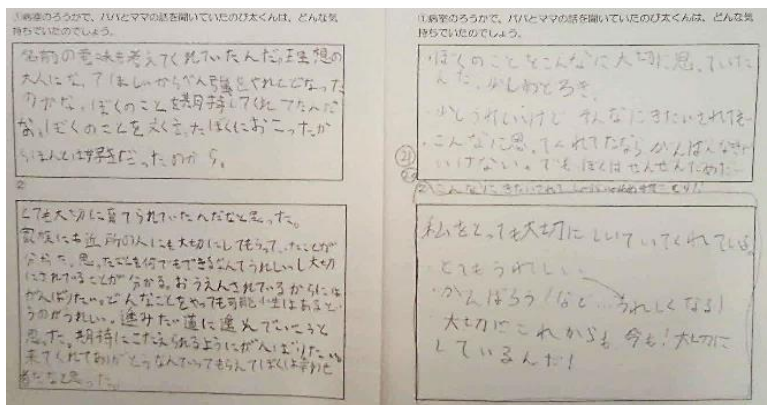 ①病室のろうかで、パパとママの話を聞いていたのび太くんは、どんな気
持ちでいたのでしょう。
名前の意味も考えてくれていたんだ。理想の
大人になってほしいからべん強をやれとどなった
のかな。ぼくのことを期待してくれてたんだ
な。ぼくのことを
らほんとは
②
とても大切に育てられていたんだなと思った。
家族にも近所の人にも大切にしてもらっていたことが
分かった。思ったことを何でもできるなんてうれしいし大切
にされていることが分かる。おうえんされているからには
がんばりたい。どんなことをやっても可能性はあるとい
うのがうれしい。進みたい道に進んでいこうと
思った。期待にこたえられるようにがんばりたい。
来てくれてありがとうなんていってもらえてぼくは幸せ
者だなと思った。
①病室のろうかで、パパとママの話を聞いていたのび太くんは、どんな気
持ちでいたのでしょう。
・ぼくのことをこんなに大切に思っていた
んだ。少しおどろき。
・少しうれしいけど そんなにきたいされても…
・こんなに思ってくれてたなら がんばんなきゃ
いけない。でも ぼくはぜんぜんだめだ…
② こんなにきたいされて
私をとっても大切に
・とてもうれしい
・がんばろう!など…うれしくなる)
大切にこれからも 今も!大切に
しているんだ!